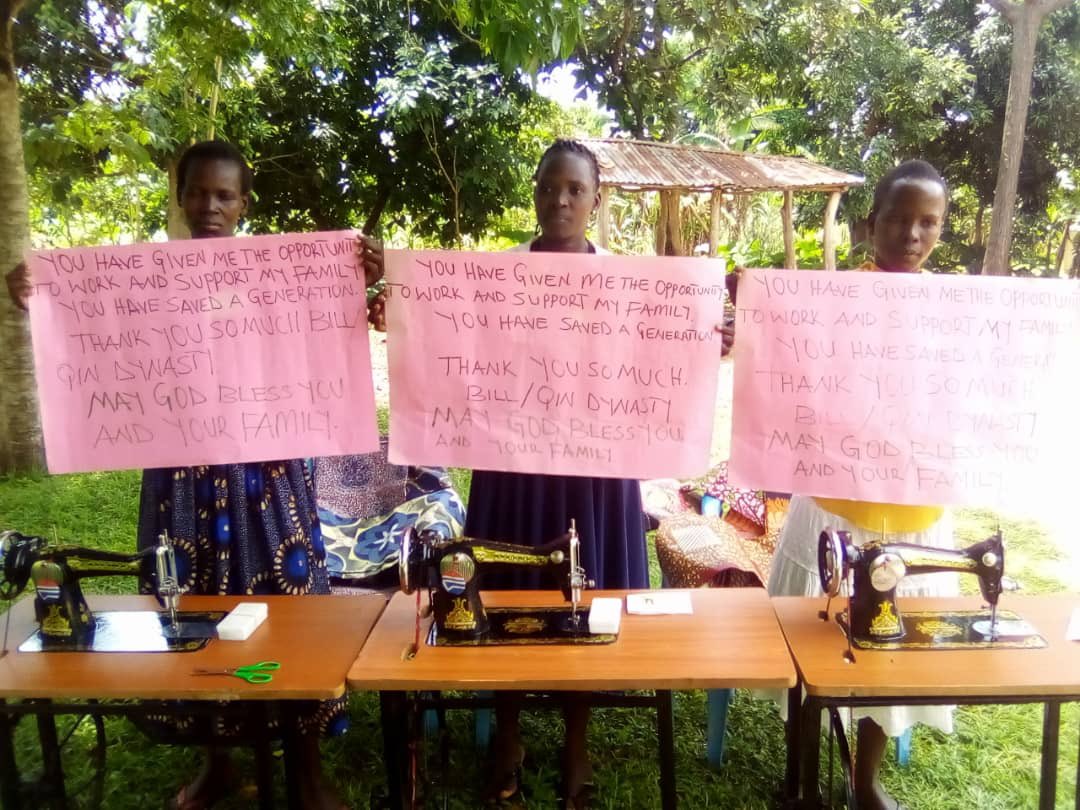 YOU HAVE GIVEN ME THE OPPORTUNITY
TO WORK AND SUPPORT MY FAMILY
YOU HAVE SAVED A GENERATION.
THANK YOU SO MUCH BILL/
QIN DYNASTY
MAY GOD BLESS YOU
AND YOUR FAMILY.
YOU HAVE GIVEN ME THE OPPORTUNITY
TO WORK AND SUPPORT MY FAMILY,
YOU HAVE SAVED A GENERATION
THANK YOU SO MUCH.
BILL/QIN DYNASTY
MAY GOD BLESS YOU
AND YOUR FAMILY
YOU HAVE GIVEN ME THE OPPORTUNITY
TO WORK AND SUPPORT MY FAMILY
YOU HAVE SAVED A
THANK YOU SO MUCH
BILL/QIN DYNASTY
MAY GOD BLESS YOU
AND YOUR FAMILY